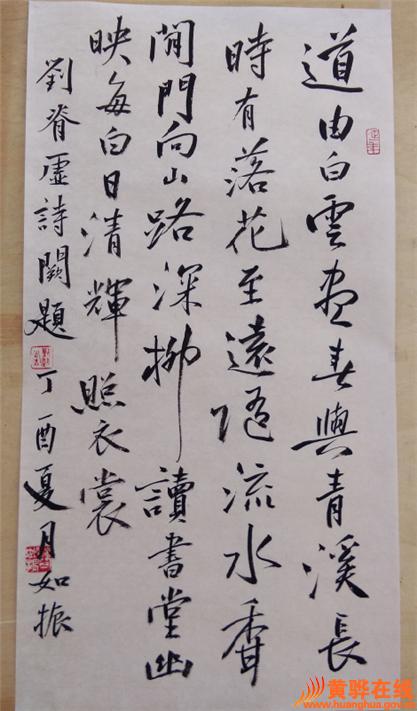 道由白雲盡春與青溪長
時有落花至遠隨流水香
閒門向山路深柳讀書堂幽
映每白日清輝照衣裳
劉脊虛詩闕題丁酉夏月如振
黄骅在线
www.huanghua.gov.c